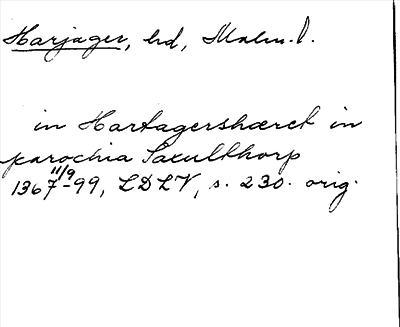 Harjager, hd, Malm. l.
in Hartagershæret in
parochia Saxulthorp
11/9
1367-99, LDLV, s. 230. orig.